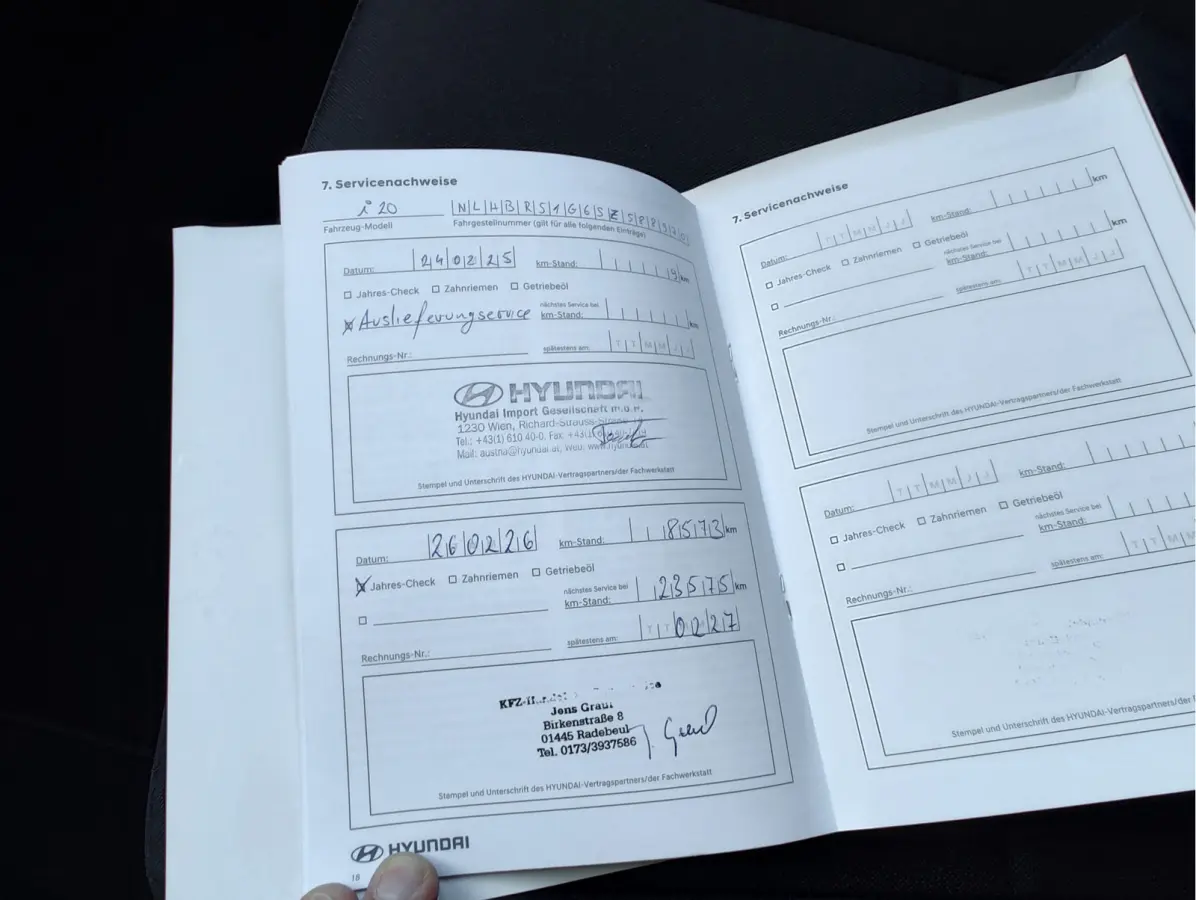 7. Servicenachweise
i20
NLHBR51G6SZ588970
Fahrzeug-Modell
Fahrgestellnummer (gilt für alle folgenden Einträge)
Datum: 240225 km-Stand: 9 km
Jahres-Check Zahnriemen Getriebeöl
Auslieferungservice
nächstes Service bei
km-Stand: km
Rechnungs-Nr.:
spätestens am: T T M M J J
HYUNDAI
Hyundai Import Gesellschaft m.b.H.
1230 Wien, Richard-Strauss-
Tel.: +43(1) 610 40-0, Fax: +43(1)
Mail: austria@hyundai.at, Web: www.hyundai.at
Stempel und Unterschrift des HYUNDAI-Vertragspartners/der Fachwerkstatt
Datum: 260226 km-Stand: 8573 km
Jahres-Check Zahnriemen Getriebeöl
nächstes Service bei
km-Stand: 23575 km
spätestens am: T T 0227
Rechnungs-Nr.:
KFZ-
Jens
Birkenstraße 8
01445 Radebeul
Tel. 0173/3937586
Stempel und Unterschrift des HYUNDAI-Vertragspartners/der Fachwerkstatt
HYUNDAI
18
7. Servicenachweise
Datum: T T M M J J km-Stand: km
Jahres-Check Zahnriemen Getriebeöl
nächstes Service bei
km-Stand: km
spätestens am: T T M M J J
Rechnungs-Nr.:
Stempel und Unterschrift des HYUNDAI-Vertragspartners/der Fachwerkstatt
Datum: T T M M J J km-Stand:
Jahres-Check Zahnriemen Getriebeöl
nächstes Service bei
km-Stand:
spätestens am: T T M M
Rechnungs-Nr.:
Stempel und Unterschrift des HYUNDAI-Vertragspartners/der